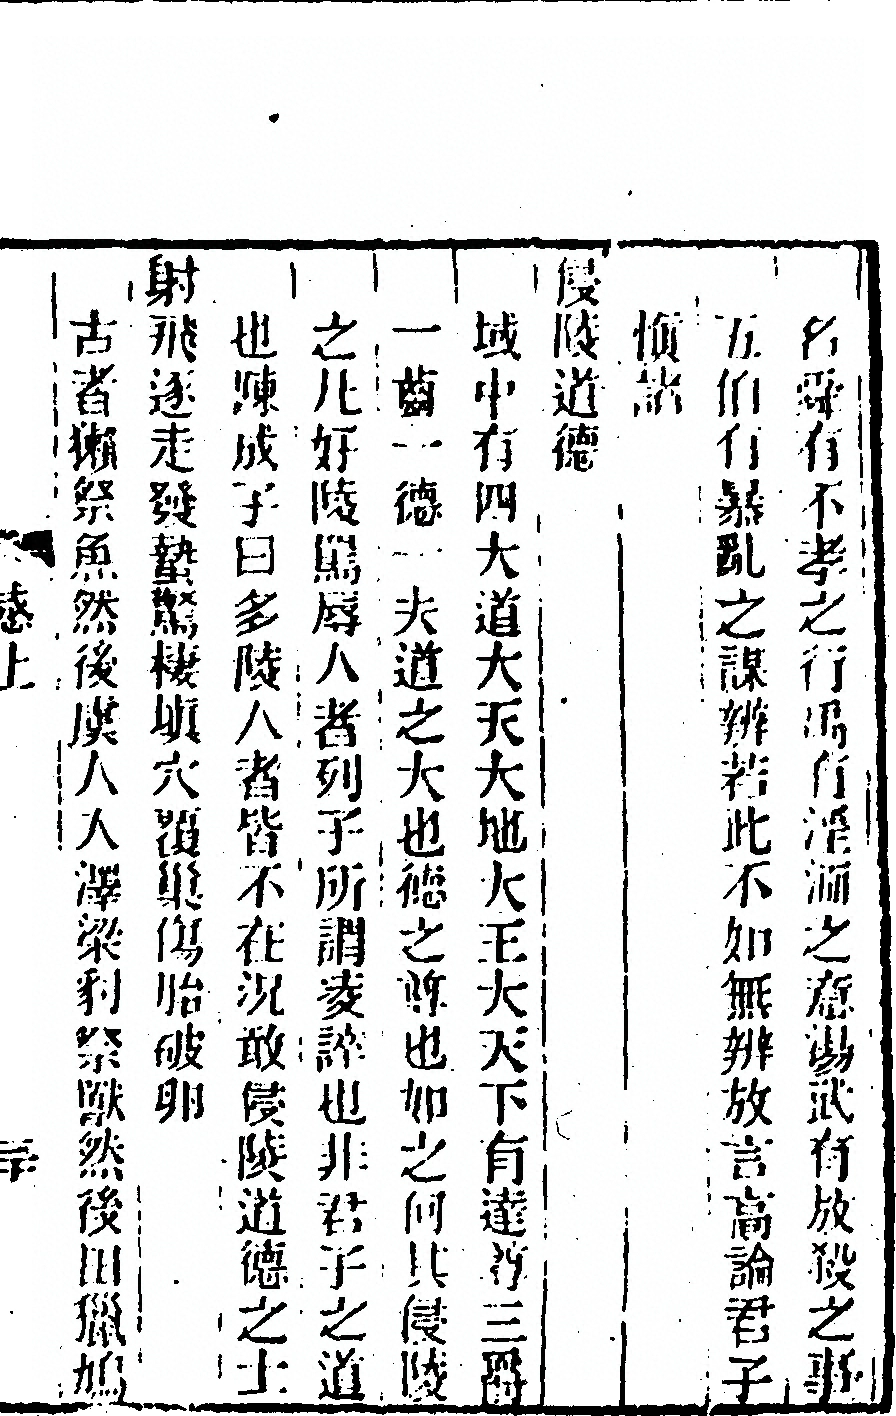 名舜有不孝之行禹有淫湎之意湯武有放殺之事
五伯有暴亂之謀辨若此不如無辨放言高論君子
慎諸
侵陵道德
域中有四大道大天大地大王大天下有達尊三爵
一齒一德一夫道之大也德之尊也如之何其侵陵
之凡好陵駡辱人者列子所謂凌誶也非君子之道
也陳成子曰多陵人者皆不在況敢侵陵道德之士
射飛逐走發蟄驚棲塡穴覆巢傷胎破卵
古者獺祭魚然後虞人入澤梁豺祭獸然後田獵鳩
感上